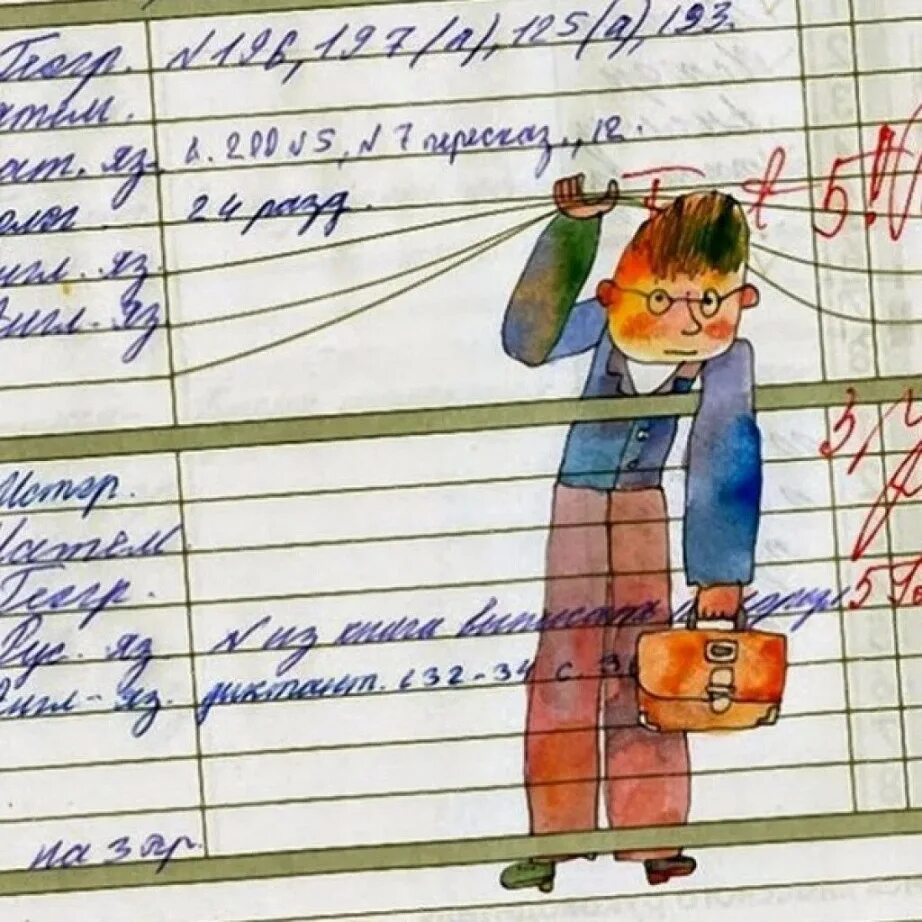 Геогр. №196, 197 (а), 125 (а), 193.
атем.
ат. яз. с. 200 №5, №7 пересказ., 12.
олог 24 разд.
нгл. яз.
Англ-яз
5!!
Истор. 3,
Матем
Геогр.
Рус. яз № из книги выписать 5
Англ-яз. диктант. с 32-34 с. 3
на 3 гр.